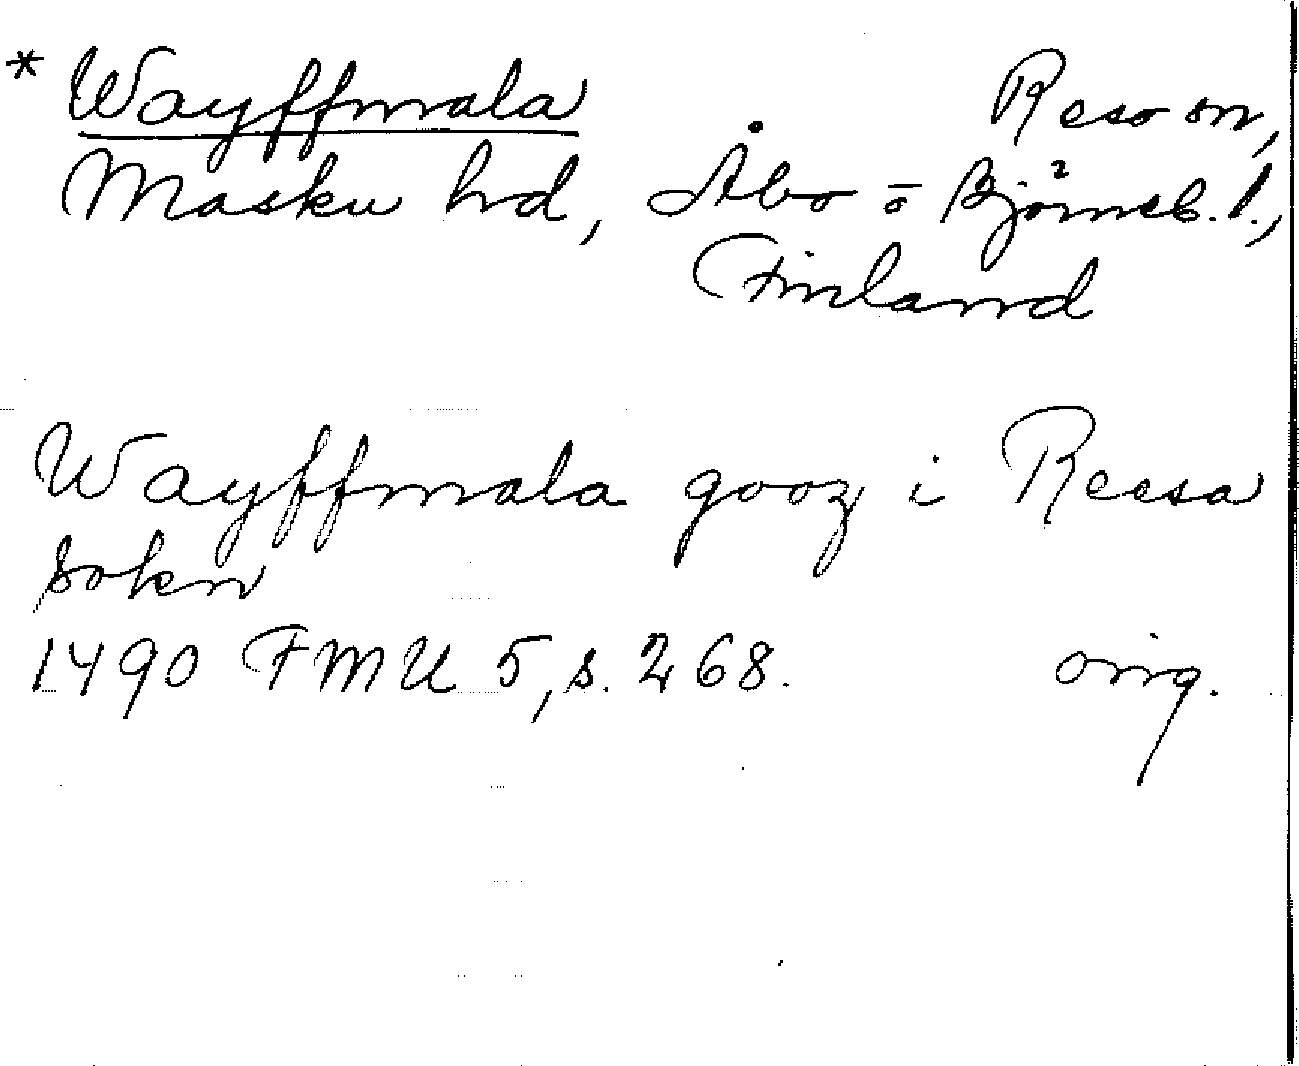 * Wayffmala Reso sn,
Masku hd, Åbo- o Björneb. l.,
Finland
Wayffmala gooz i Reesa
sokn
1490 FMU 5, s. 268. orig.